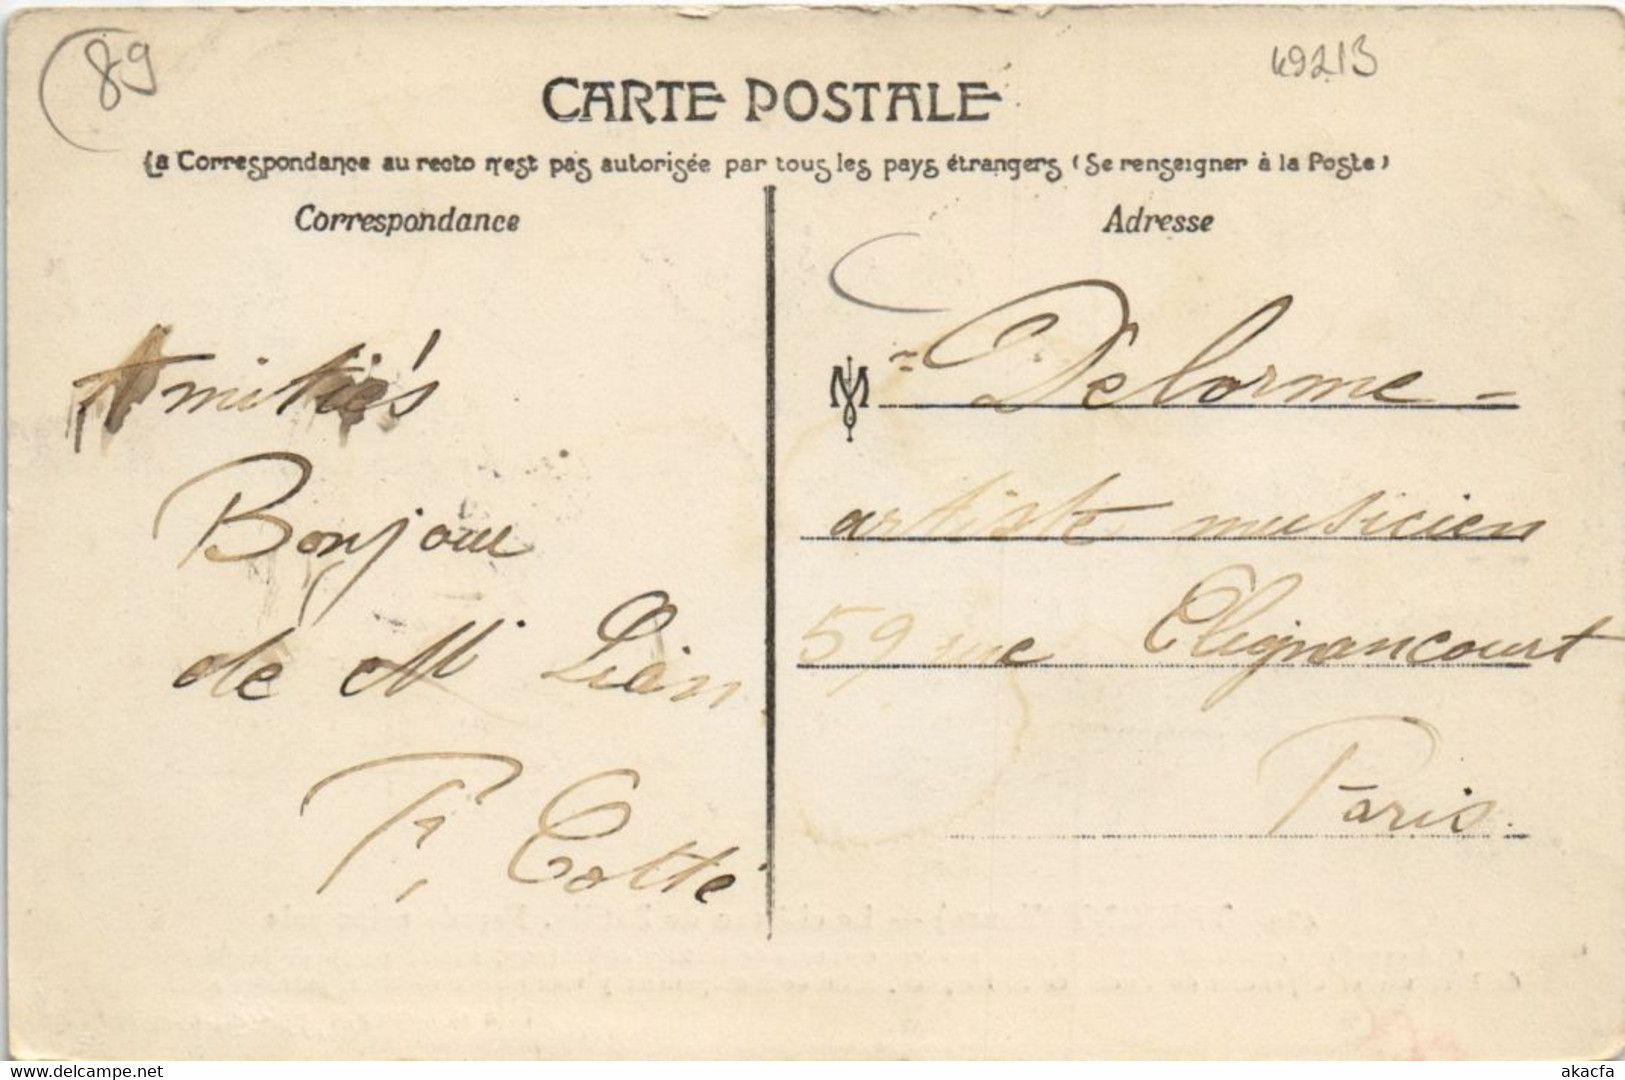 89
49213
CARTE POSTALE
La Correspondance au recto n'est pas autorisée par tous les pays étrangers (Se renseigner à la Poste)
Correspondance
Adresse
Amitiés
Bonjour
de Mr Lién
F. Cotté
M r Delorme
artiste musicien
59 rue Clignancourt
Paris.
www.delcampe.net
akacfa